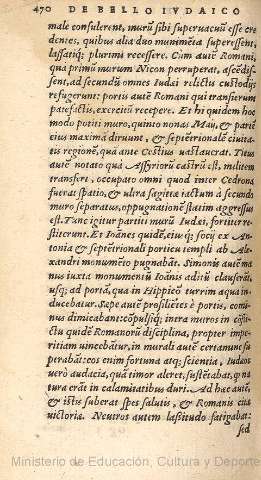 470 DE BELLO IVDAICO
male consulerent, murũ sibi superuacuũ esse cre
dentes, quibus alia duo munimẽta superessent,
lassatiq; plurimi recessere. Cum autẽ Romani,
qua primũ murum Nicon perruperat, ascẽdis-
sent, ad secundũ omnes Iudæi relictis custodijs
refugerunt: portis autẽ Romani qui transierum
patefactis, exercitũ recepere. Et hi quidem hoc
modo potiti muro, quinto nonas Maij, & partẽ
eius maximã diruunt, & septẽtrionalẽ ciuita
tis regionẽ, quã ante Cestius uastauerat. Titus
autẽ notato quã Assyriorũ castrũ est, militem
transfert, occupato omni quod inter Cedrona
fuerat spatio, & ultra sagittæ iactum à secundo
muro separatus, oppugnationẽ statim aggressus
est. Tunc igitur partiti murũ Iudæi, fortiter re-
sisterunt. Et Ioãnes quidẽ, eiuq; socij ex An-
tonia & septẽtrionali porticu templi ab Ale-
xandri monumẽto pugnabãt. Simonis autẽ ma
nus iuxta monumentũ Ioãnis aditũ clauserãt,
usq; ad portã, qua in Hippicũ turrim aqua in-
ducebatur. Sæpe autẽ prosiliẽtes è portis, comi
nus dimicabant: cõpulsiq; intera muros in cõfli
ctu quidẽ Romanorũ disciplina, propter impe-
ritiam uincebãtur, in murali autẽ certamine su
perabãt: eos enim fortuna atq; scientia, Iudæos
uerò audacia, quã timor aleret, sustẽtabat, q; na
tura erãt in calamitatibus duri. Ad hæc autẽ,
& istis suberat spes salutis, & Romanis citæ
uictoriæ. Neutros autem lassitudo fatigabat:
sed
Ministerio de Educación, Cultura y Deporte